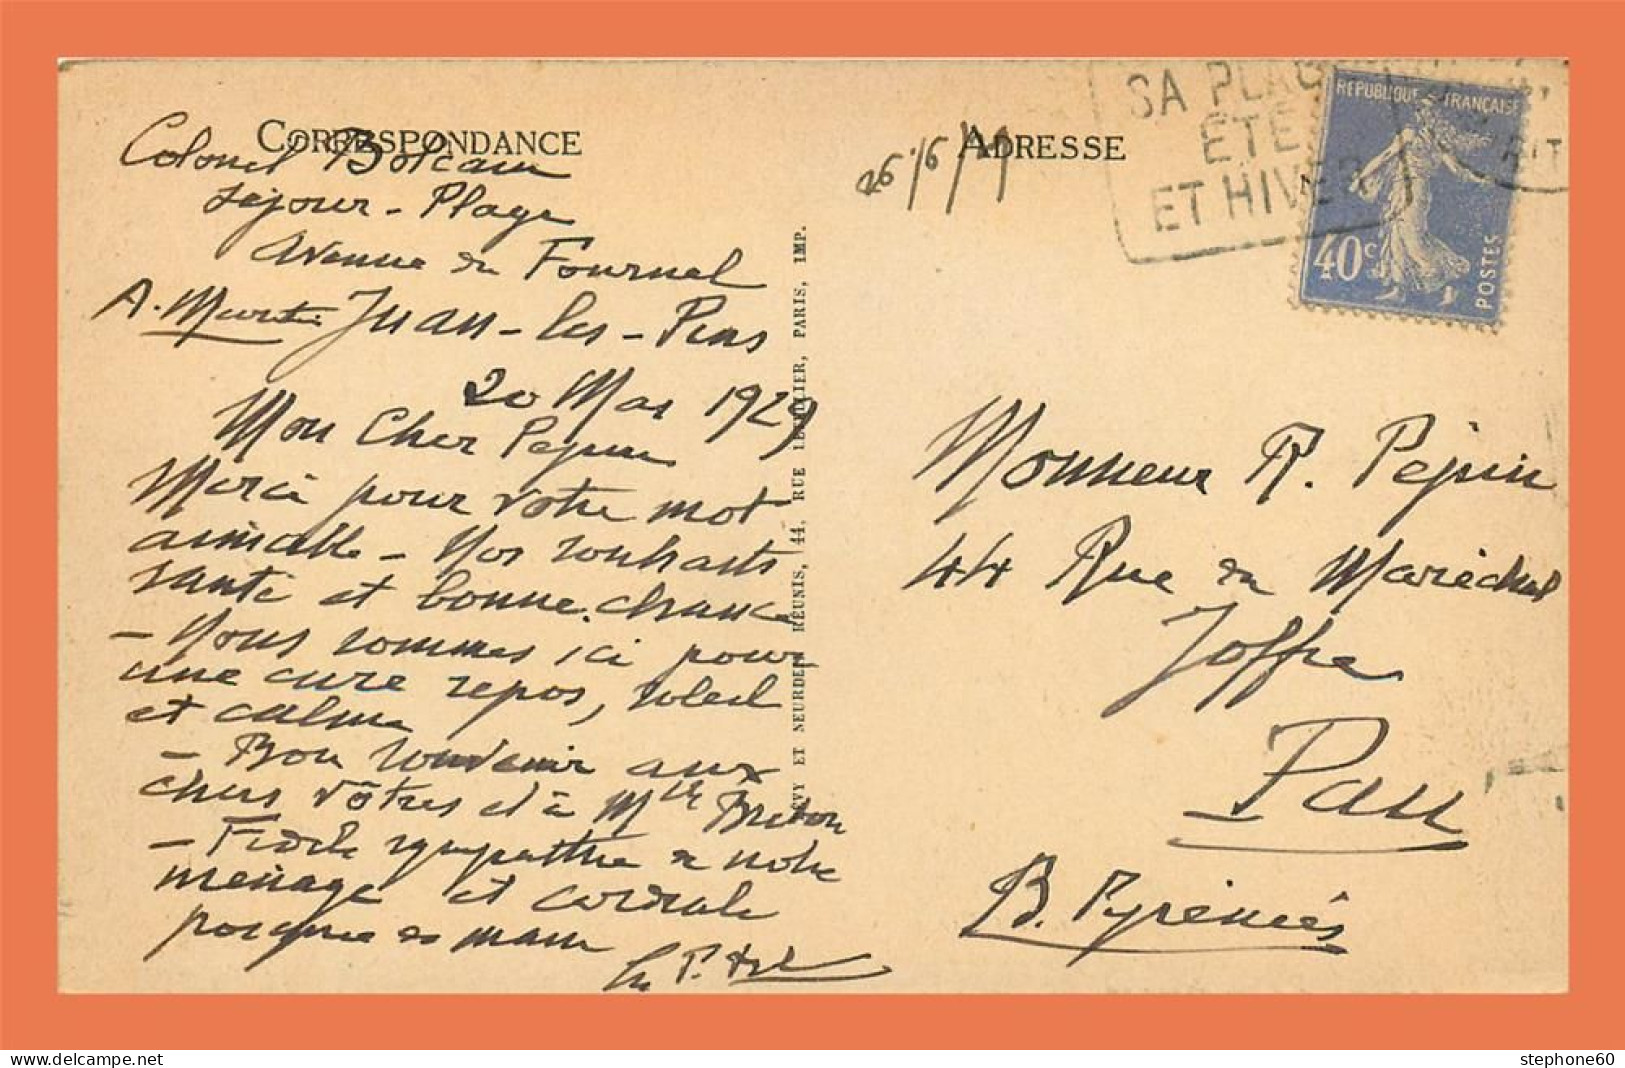 CORRESPONDANCE
Colonel
Séjour - Plage
Avenue du Fournel
A. Martin Juan-les-Pins
20 Mai 1929
Mon Cher Pepin
Merci pour votre mot
aimable - Nos souhaits
santé et bonne chance
- Nous sommes ici pour
une cure repos, soleil
et calme
- Bon souvenir aux
chers vôtres et à Mlle Breton
- Fidèle sympathie de notre
ménage et cordiale
poignée de main
LEVY ET NEURDEIN RÉUNIS, 44, RUE LETELLIER, PARIS, IMP.
ADRESSE
26/6/29
SA PLAGE
ÉTÉ
ET HIVER
RÉPUBLIQUE FRANÇAISE
40c
POSTES
Monsieur R. Pépin
44 Rue du Maréchal
Joffre
Pau
B. Pyrénées
stephone60